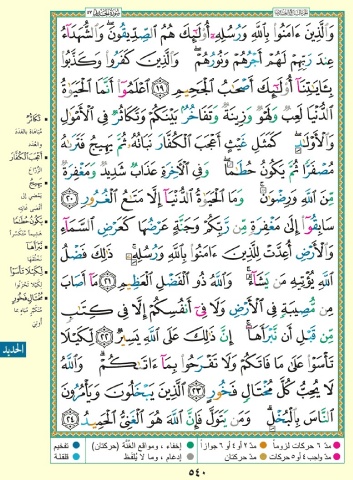 سورة الحديد ٥٧
وَالَّذِينَ ءَامَنُوا بِاللَّهِ وَرُسُلِهِ أُولَٰئِكَ هُمُ الصِّدِّيقُونَ وَالشُّهَدَاءُ
عِندَ رَبِّهِمْ لَهُمْ أَجْرُهُمْ وَنُورُهُمْ وَالَّذِينَ كَفَرُوا وَكَذَّبُوا
بِـَٔايَٰتِنَا أُولَٰئِكَ أَصْحَٰبُ الْجَحِيمِ ١٩ اعْلَمُوا أَنَّمَا الْحَيَوٰةُ
الدُّنْيَا لَعِبٌ وَلَهْوٌ وَزِينَةٌ وَتَفَاخُرٌ بَيْنَكُمْ وَتَكَاثُرٌ فِي الْأَمْوَٰلِ
وَالْأَوْلَٰدِ كَمَثَلِ غَيْثٍ أَعْجَبَ الْكُفَّارَ نَبَاتُهُ ثُمَّ يَهِيجُ فَتَرَىٰهُ
مُصْفَرًّا ثُمَّ يَكُونُ حُطَٰمًا وَفِي الْءَاخِرَةِ عَذَابٌ شَدِيدٌ وَمَغْفِرَةٌ
مِّنَ اللَّهِ وَرِضْوَٰنٌ وَمَا الْحَيَوٰةُ الدُّنْيَا إِلَّا مَتَٰعُ الْغُرُورِ ٢٠
سَابِقُوا إِلَىٰ مَغْفِرَةٍ مِّن رَّبِّكُمْ وَجَنَّةٍ عَرْضُهَا كَعَرْضِ السَّمَاءِ
وَالْأَرْضِ أُعِدَّتْ لِلَّذِينَ ءَامَنُوا بِاللَّهِ وَرُسُلِهِ ذَٰلِكَ فَضْلُ
اللَّهِ يُؤْتِيهِ مَن يَشَاءُ وَاللَّهُ ذُو الْفَضْلِ الْعَظِيمِ ٢١ مَا أَصَابَ
مِن مُّصِيبَةٍ فِي الْأَرْضِ وَلَا فِي أَنفُسِكُمْ إِلَّا فِي كِتَٰبٍ
مِّن قَبْلِ أَن نَّبْرَأَهَا إِنَّ ذَٰلِكَ عَلَى اللَّهِ يَسِيرٌ ٢٢ لِّكَيْلَا
تَأْسَوْا عَلَىٰ مَا فَاتَكُمْ وَلَا تَفْرَحُوا بِمَا ءَاتَىٰكُمْ وَاللَّهُ
لَا يُحِبُّ كُلَّ مُخْتَالٍ فَخُورٍ ٢٣ الَّذِينَ يَبْخَلُونَ وَيَأْمُرُونَ
النَّاسَ بِالْبُخْلِ وَمَن يَتَوَلَّ فَإِنَّ اللَّهَ هُوَ الْغَنِيُّ الْحَمِيدُ ٢٤
تَكَاثُرٌ
أَعْجَبَ الْكُفَّارَ
الزُّرَّاعَ
يَهِيجُ
يَكُونُ حُطَامًا
نَبْرَأَهَا
نَخْلُقَهَا
لِكَيْلَا تَأْسَوْا
مُخْتَالٍ فَخُورٍ
الحديد
مدّ ٦ حركات لزوماً مدّ ٢ أو ٤ أو ٦ جوازاً إخفاء، ومواقع الغُنَّة (حركتان) تفخيم
مدّ واجب ٤ أو ٥ حركات مدّ حركتان إدغام، وما لا يُلفَظ قلقلة
٥٤٠